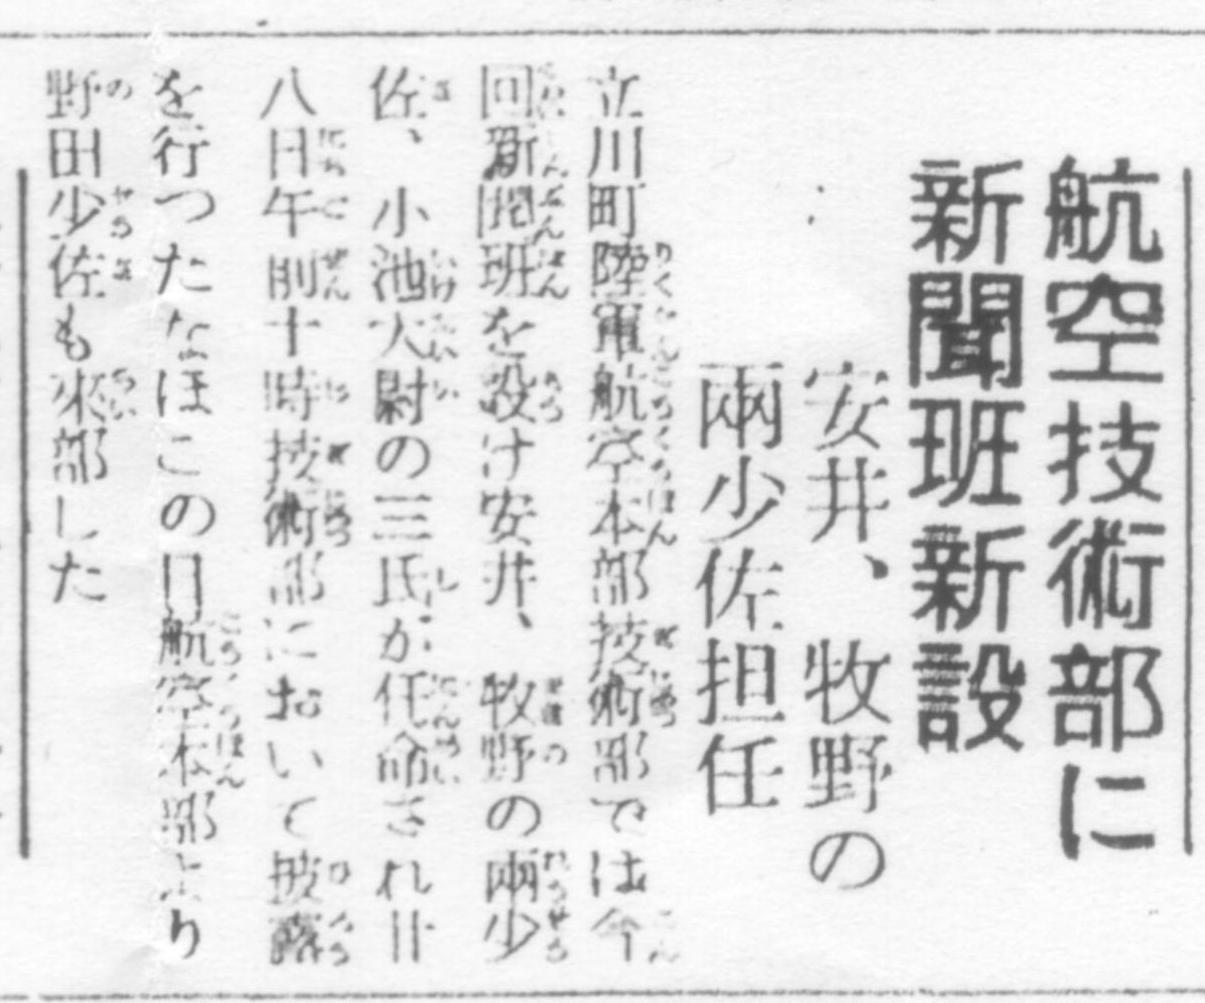 航空技術部に
新聞班新設
安井、牧野の
兩少佐担任
立川町陸軍航空本部技術部では今
回新聞班を設け安井、牧野の兩少
佐、小池大尉の三氏が任命され廿
八日午前十時技術部において披露
を行つたなほこの日航空本部より
野田少佐も來部した